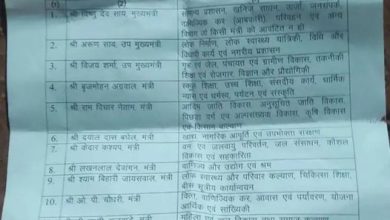 (1) (2)
1. श्री विष्णु देव साय, मुख्यमंत्री सामान्य प्रशासन, खनिज साधन, ऊर्जा, जनसंपर्क,
वाणिज्यिक कर (आबकारी), परिवहन एवं अन्य
विभाग जो किसी मंत्री को आवंटित न हो
2. श्री अरुण साव, उप मुख्यमंत्री लोक निर्माण, लोक स्वास्थ्य यांत्रिकी, विधि और
विधायी कार्य एवं नगरीय प्रशासन
3. श्री विजय शर्मा, उप मुख्यमंत्री गृह एवं जेल, पंचायत एवं ग्रामीण विकास, तकनीकी
शिक्षा एवं रोजगार, विज्ञान और प्रौद्योगिकी
4. श्री बृजमोहन अग्रवाल, मंत्री स्कूल शिक्षा, उच्च शिक्षा, संसदीय कार्य, धार्मिक
न्यास एवं धर्मस्व, पर्यटन एवं संस्कृति
5. श्री राम विचार नेताम, मंत्री आदिम जाति विकास, अनुसूचित जाति विकास,
पिछड़ा वर्ग एवं अल्पसंख्यक विकास, कृषि विकास
एवं किसान कल्याण
6. श्री दयाल दास बघेल, मंत्री खाद्य, नागरिक आपूर्ति एवं उपभोक्ता संरक्षण
7. श्री केदार कश्यप, मंत्री वन एवं जलवायु परिवर्तन, जल संसाधन, कौशल
विकास एवं सहकारिता
8. श्री लखनलाल देवांगन, मंत्री वाणिज्य और उद्योग एवं श्रम
9. श्री श्याम बिहारी जायसवाल, मंत्री लोक स्वास्थ्य और परिवार कल्याण, चिकित्सा शिक्षा,
बीस सूत्रीय कार्यान्वयन
10. श्री ओ. पी. चौधरी, मंत्री वित्त, वाणिज्यिक कर, आवास एवं पर्यावरण, योजना
आर्थिक एवं सांख्यिकी
महिला एवं